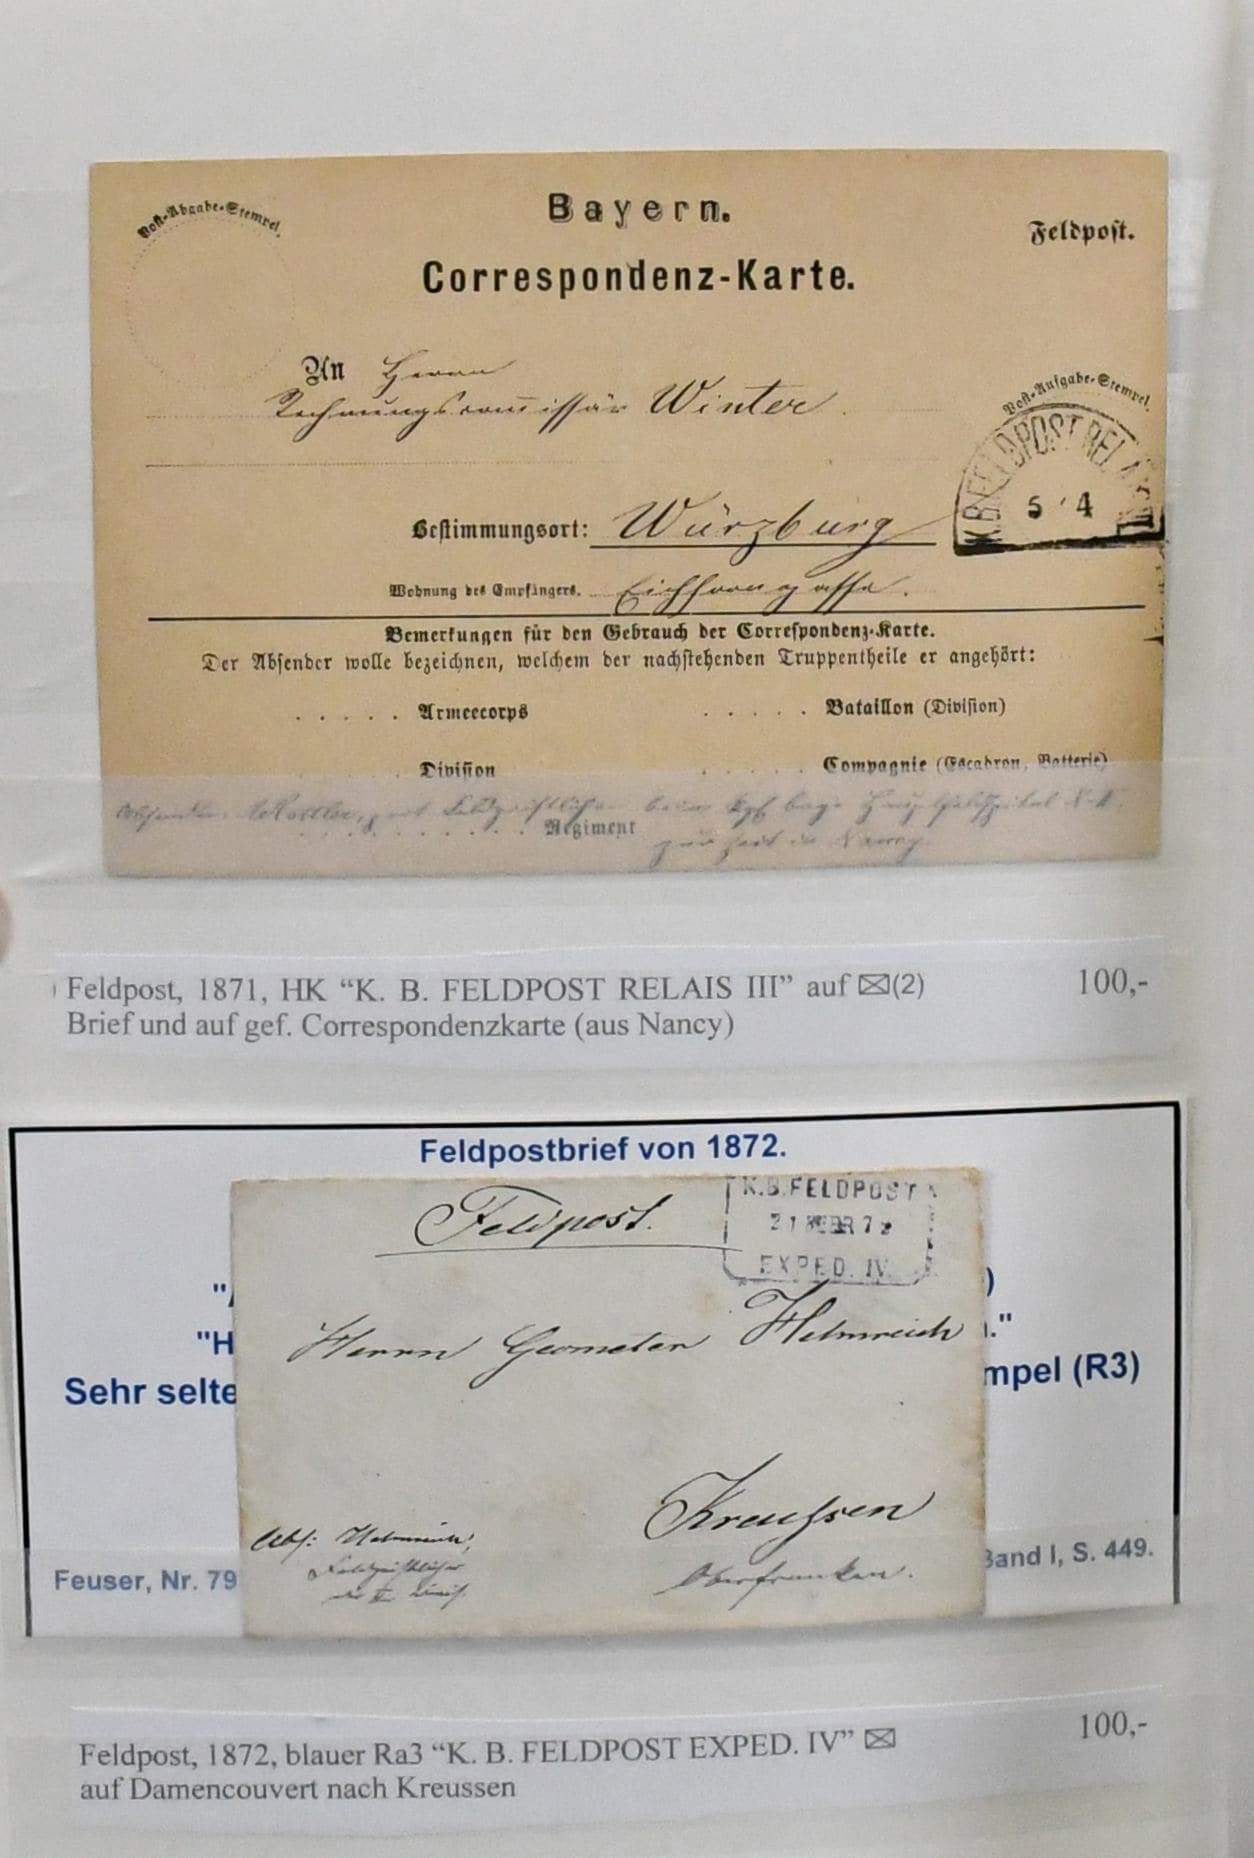 Bayern.
Post-Abgabe-Stempel.
Feldpost.
Correspondenz-Karte.
An Herrn
Rechnungscommissär Winter
Post-Aufgabe-Stempel.
K. B. FELDPOST RELAIS
5 4
III
Bestimmungsort: Würzburg
Wohnung des Empfängers.
Bemerkungen für den Gebrauch der Correspondenz-Karte.
Der Absender wolle bezeichnen, welchem der nachstehenden Truppentheile er angehört:
. . . . . Armeecorps . . . . . Bataillon (Division)
Division . . . . . Compagnie (Escadron, Batterie)
Absender:
Regiment
zur Zeit in Nancy.
Feldpost, 1871, HK “K. B. FELDPOST RELAIS III” auf ✉(2) 100,-
Brief und auf gef. Correspondenzkarte (aus Nancy)
Feldpostbrief von 1872.
Feldpost.
K.B.FELDPOST
21 FEBR 72
EXPED. IV.
"H
Herrn Geometer Helmreich
Sehr selte
mpel (R3)
Kreussen
Oberfranken.
Abs: Helmreich,
Feldgeistlicher
Feuser, Nr. 79
Band I, S. 449.
Feldpost, 1872, blauer Ra3 “K. B. FELDPOST EXPED. IV” ✉ 100,-
auf Damencouvert nach Kreussen